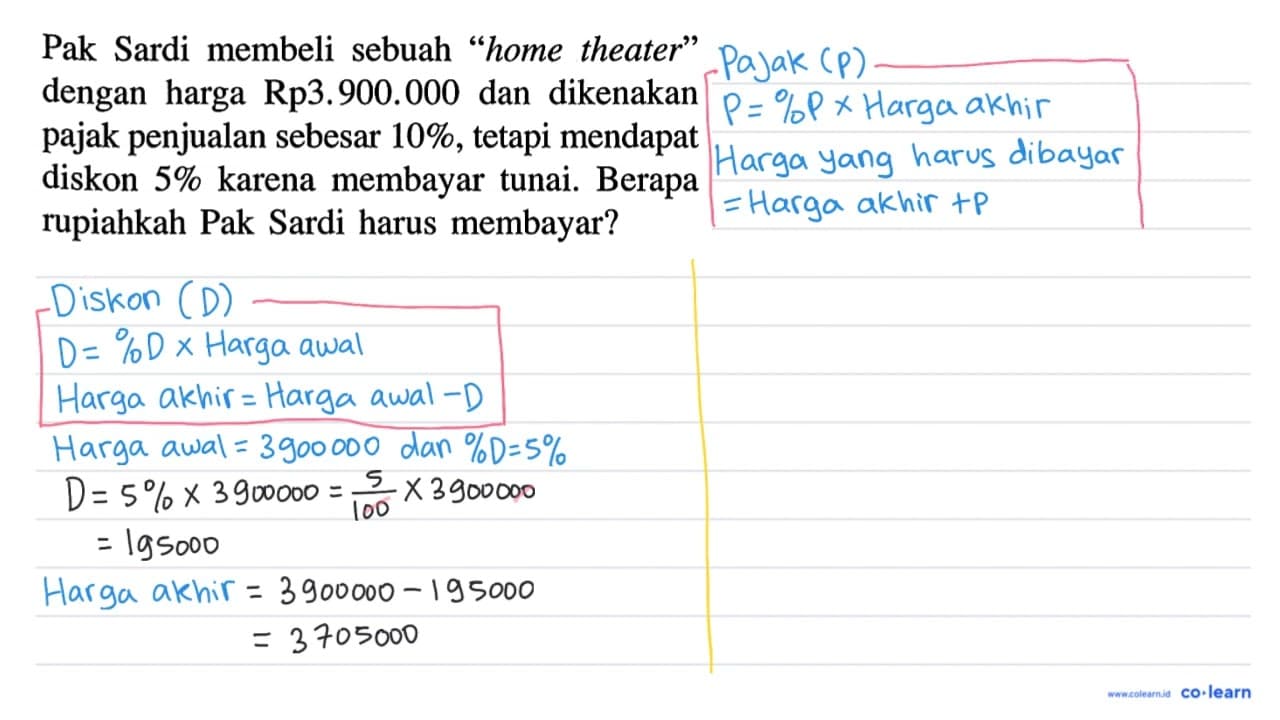 Pak Sardi membeli sebuah “home theater”
dengan harga Rp3.900.000 dan dikenakan
pajak penjualan sebesar 10%, tetapi mendapat
diskon 5% karena membayar tunai. Berapa
rupiahkah Pak Sardi harus membayar?
Pajak (P)
P = %P × Harga akhir
Harga yang harus dibayar
= Harga akhir + P
Diskon (D)
D = %D × Harga awal
Harga akhir = Harga awal − D
Harga awal = 3900000 dan %D = 5%
D = 5% × 3900000 = 5/100 × 3900000
= 195000
Harga akhir = 3900000 − 195000
= 3705000
www.colearn.id co·learn